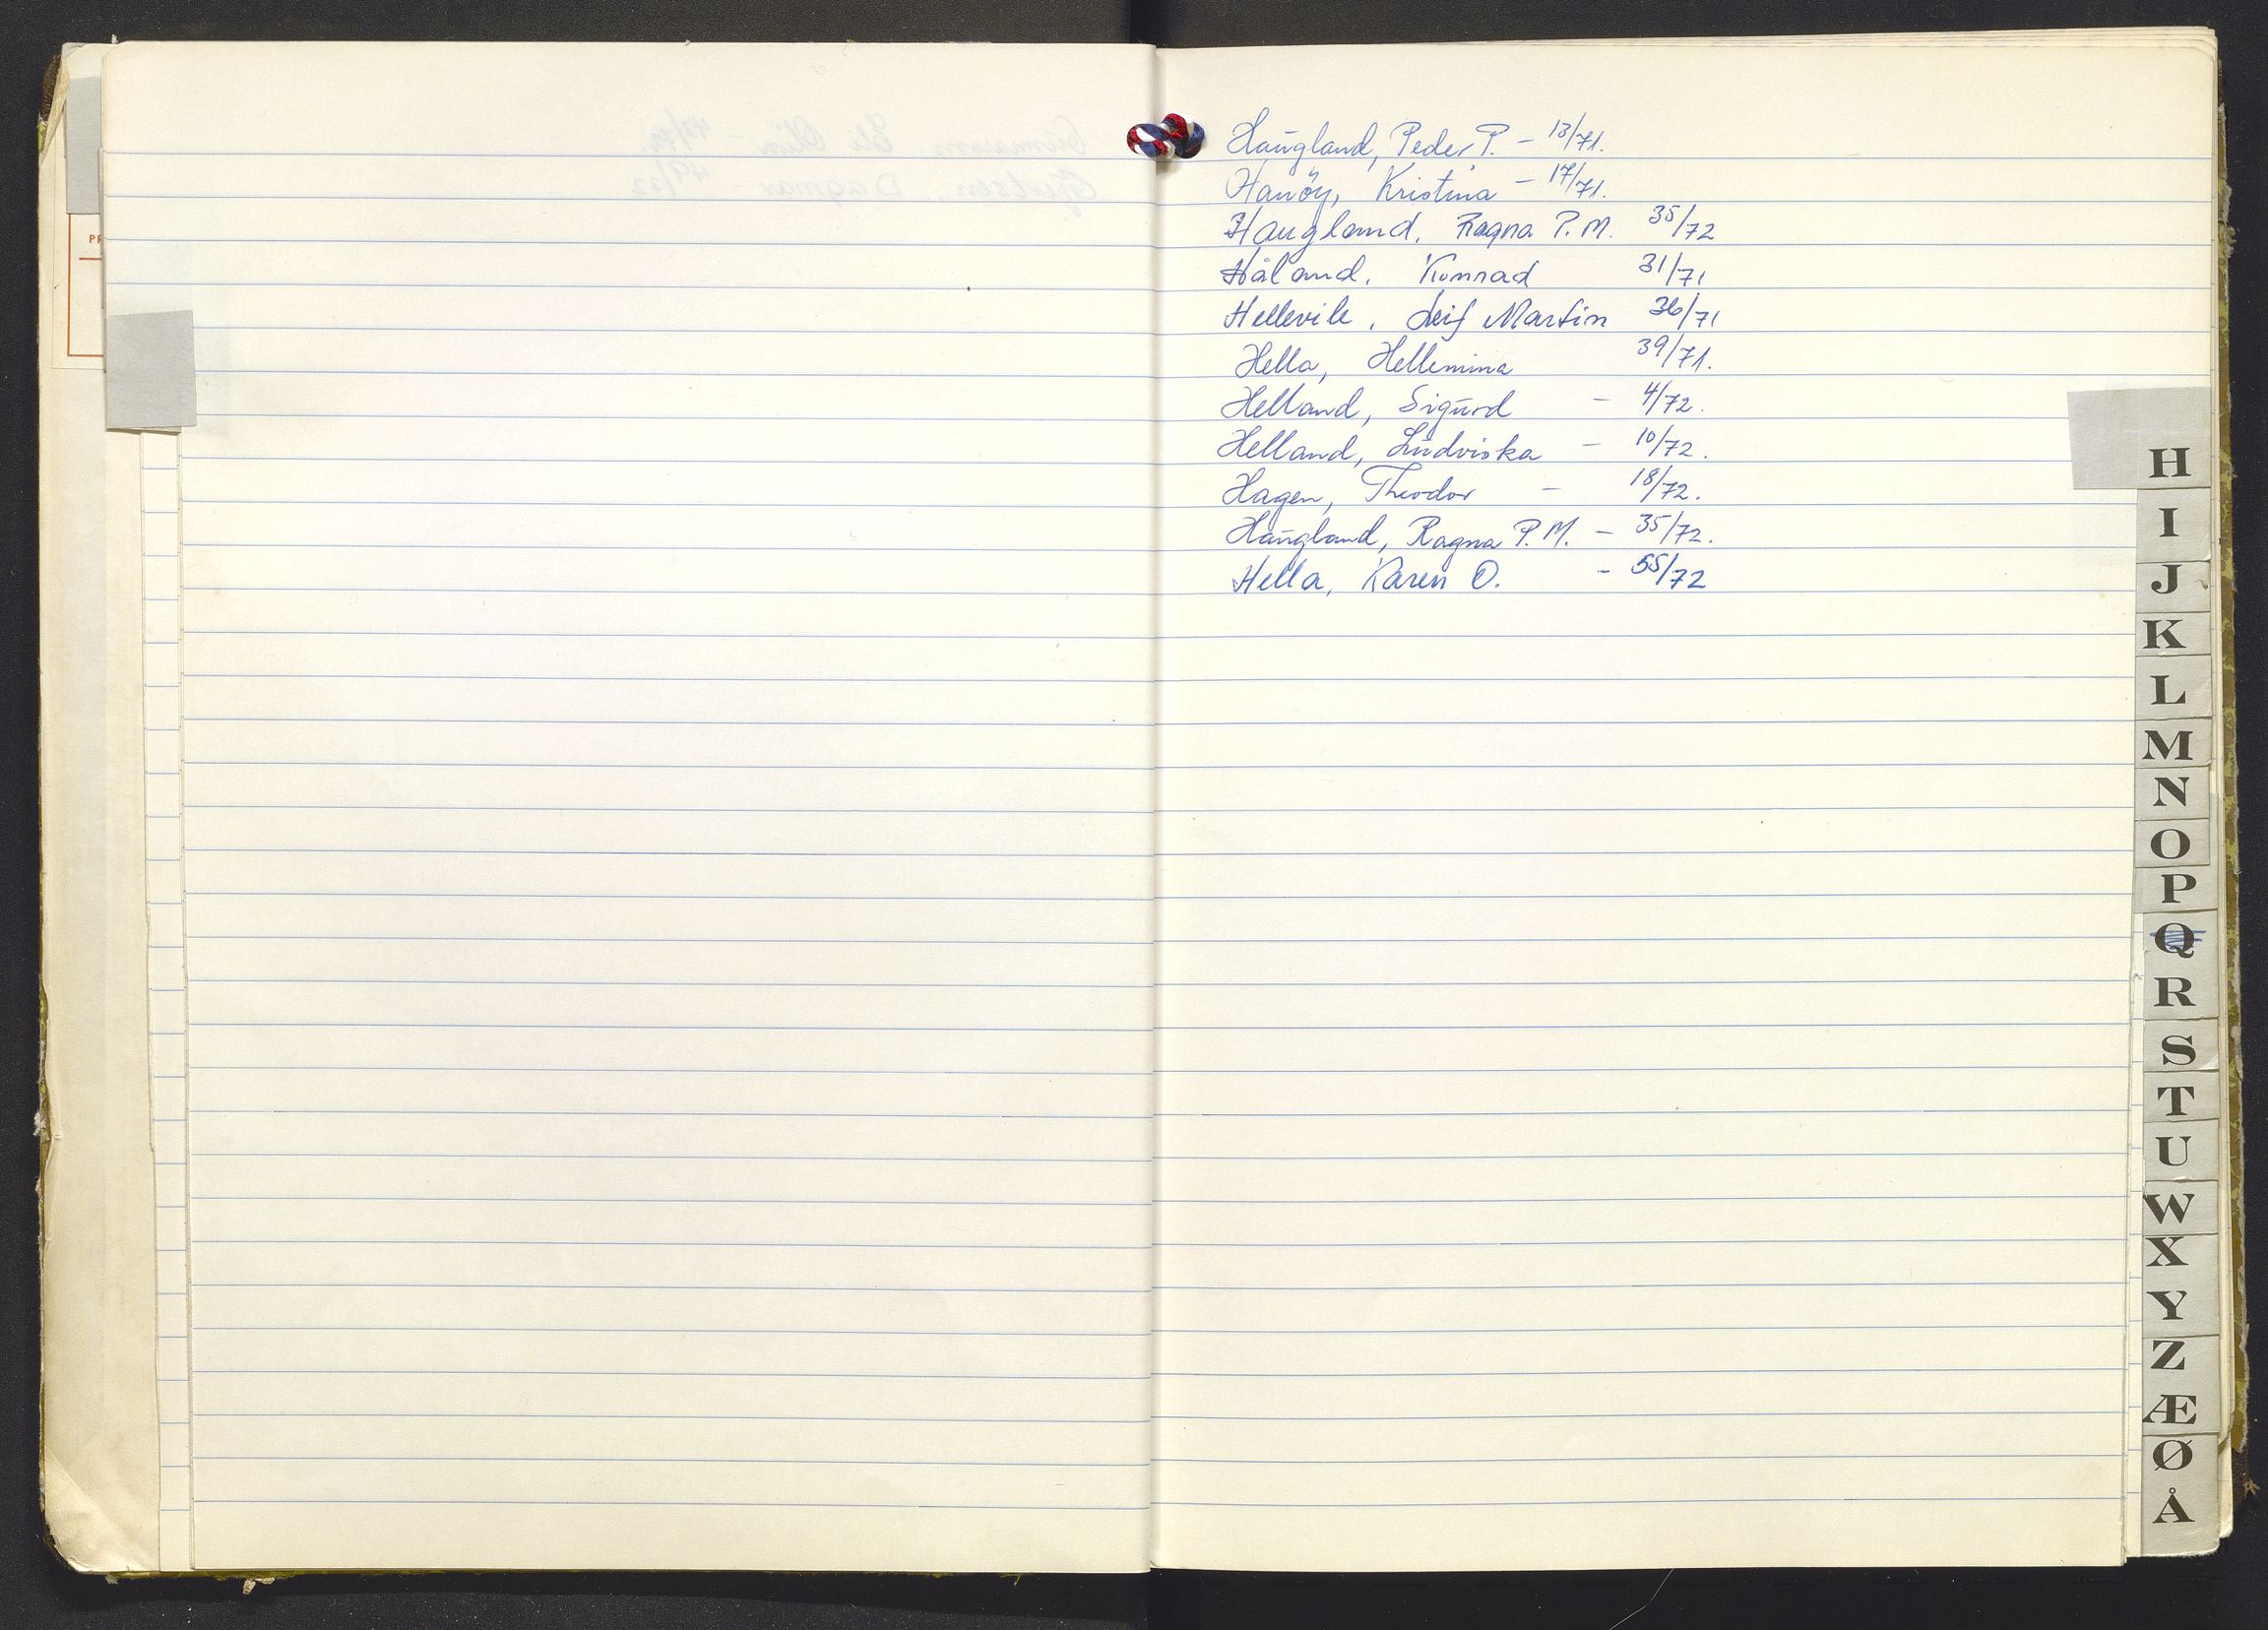 Haugland, Peder P. – 13/71.
Hanöy, Kristina – 17/71.
Haugland, Ragna P. M. 35/72
Håland, Konrad 31/71
Hellevik, Leif Martin 36/71
Hella, Hellemina 39/71.
Helland, Sigurd – 4/72.
Helland, Ludviska – 10/72.
Hagen, Theodor – 18/72.
Haugland, Ragna P. M. – 35/72.
Hella, Karen O. – 55/72
H
I
J
K
L
M
N
O
P
Q
R
S
T
U
W
X
Y
Z
Æ
Ø
Å